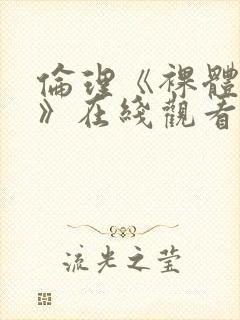 倫理《裸體
》在綫觀看
流光之莹